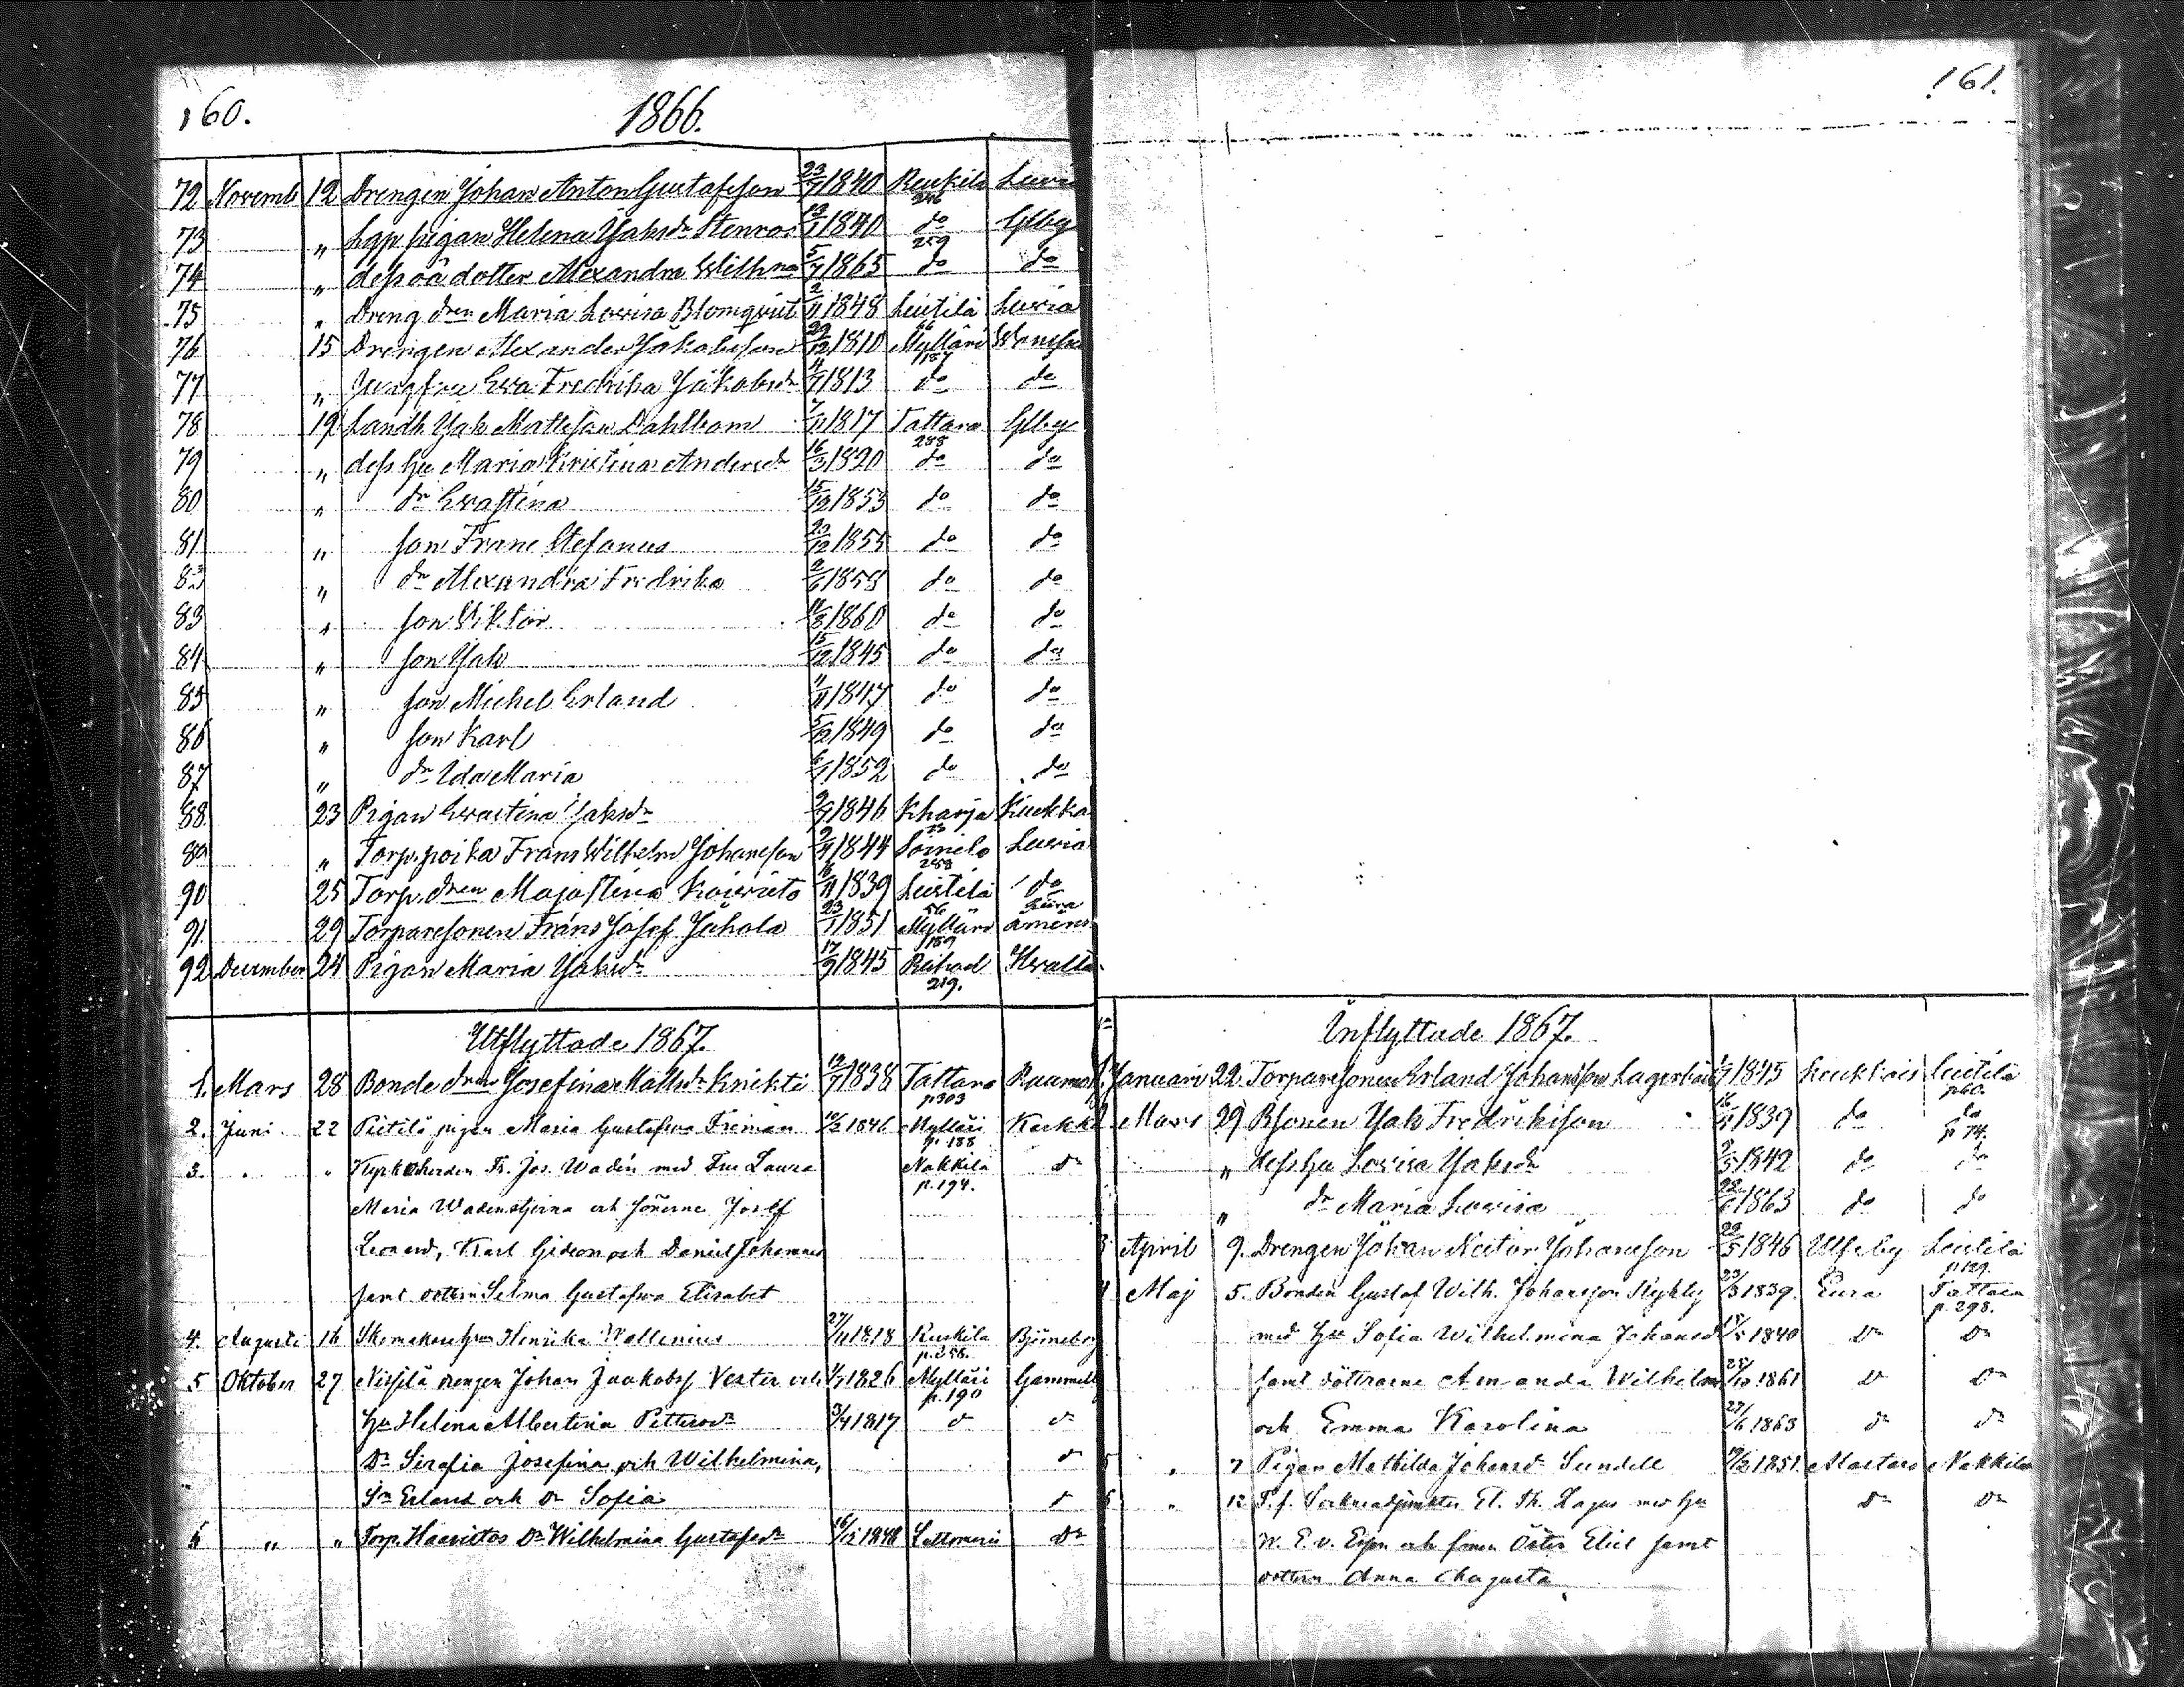 160.
1866.
72 Novemb 12 Drengen Johan Anton Gustafsson 23/7 1840 Ruskila 246 Luvia
73 " Lgp. pigan Helena Jaksdr Stenros 13/1 1840 do 259 Ulfby
74 " dess oä dotter Alexandra Wilhna 5/7 1865 do do
75 " Dreng dren Maria Lovisa Blomqvist 2/11 1848 Leistilä 66 Luvia
76 15 Drengen Alexander Jakobsson 29/12 1810 Mylläri 187
77 " Jungfru Eva Fredrika Jakobsdr 1813 do do
78 19 Landb. Jak Mattsson Dahlbom 7/11 1817 Tattara 288 Ulfby
79 " dess hu Maria Kristina Andersdr 16/3 1820 do do
80 " dr Evastina 15/12 1853 do do
81 " son Frans Stefanus 23/12 1855 do do
83 " dr Alexandra Fredrika 2/6 1858 do do
83 " son Viktor 11/8 1860 do do
84 " son Jak 15/12 1845 do do
85 " son Michel Erland 1847 do do
86 " son Karl 5/12 1849 do do
87 " dr Ida Maria 1852 do do
88. 23 Pigan Evastina Jaksdr 2/9 1846 Kharja 23 Kiukka
89 " Torp. poika Frans Wilhelm Johansson 2/11 1844 Soinila 288 Luvia
90 25 Torp. dren Majastina 1839 Leistilä 56 do
91. 29 Torparesonen Frans Josef Juhola 23/1 1851 Mylläri 189
92 December 24 Pigan Maria Jaksdr 17/9 1845 219.
Utflyttade 1867.
1. Mars 28 Bonde dren Josefina Mattsdr Knihti 12/7 1838 Tattara p.303 Raumo
2. Juni 22 Pietilä pigan Maria Gustafva Friman 10/2 1846 Mylläri p. 188 Kiukka
3. " " Kyrkoherden Fr. Jos. Wadén med Fru Laura Nakkila p. 194. do
Maria Wadenstjerna och sönerne Josef
Leonard, Karl Gideon och Daniel Johannes
samt dottern Selma Gustafva Elisabet
4. Augusti 16 Skomakarehun Henrika Wallenius 27/11 1818 Ruskila p.258. Björneborg
5 Oktober 27 drengen Johan Jaakobss. Vester och 1/7 1826 Mylläri p. 190 Gammelby
hu Helena Albertina Pettersdr 3/4 1817 do do
Dr Serafia Josefina och Wilhelmina, do
Sn Erland och dr Sofia do
6 " " Torp. Haavistos Dr Wilhelmina Gustafsdr 16/5 1848 Dr
161.
Inflyttade 1867.
1. Januari 22 Torparesonen Erland Johansson 1845 Kiukkais Leistilä p60.
2 Mars 29 Bsonen Jak Fredriksson 16/11 1839 do do p 74.
" dess hu Lovisa Jaksdr 2/5 1842 do do
" dr Maria Lovisa 22/6 1863 do do
3 April 9. Drengen Johan Nestor Johansson 29/5 1846 Ulfsby Leistilä p.129.
4 Maj 5. Bonden Gustaf Wilh. Johansson 23/3 1839. Eura Tattara p. 298.
med hu Sofia Wilhelmina Johansdr 1840 Dr Dr
samt döttrarne Amanda Wilhelmi 25/10 1861 Dr Dr
och Emma Karolina 27/6 1863 dr dr
5 " 7 Pigan Mathilda Johansdr Sundell 19/2 1851 Mastara Nakkila
6 " 12 T.f. El. Th. Lagus med hu Dr Dr
W. E. v. Essen och sonen Östen Eliel samt
dottern Anna Augusta